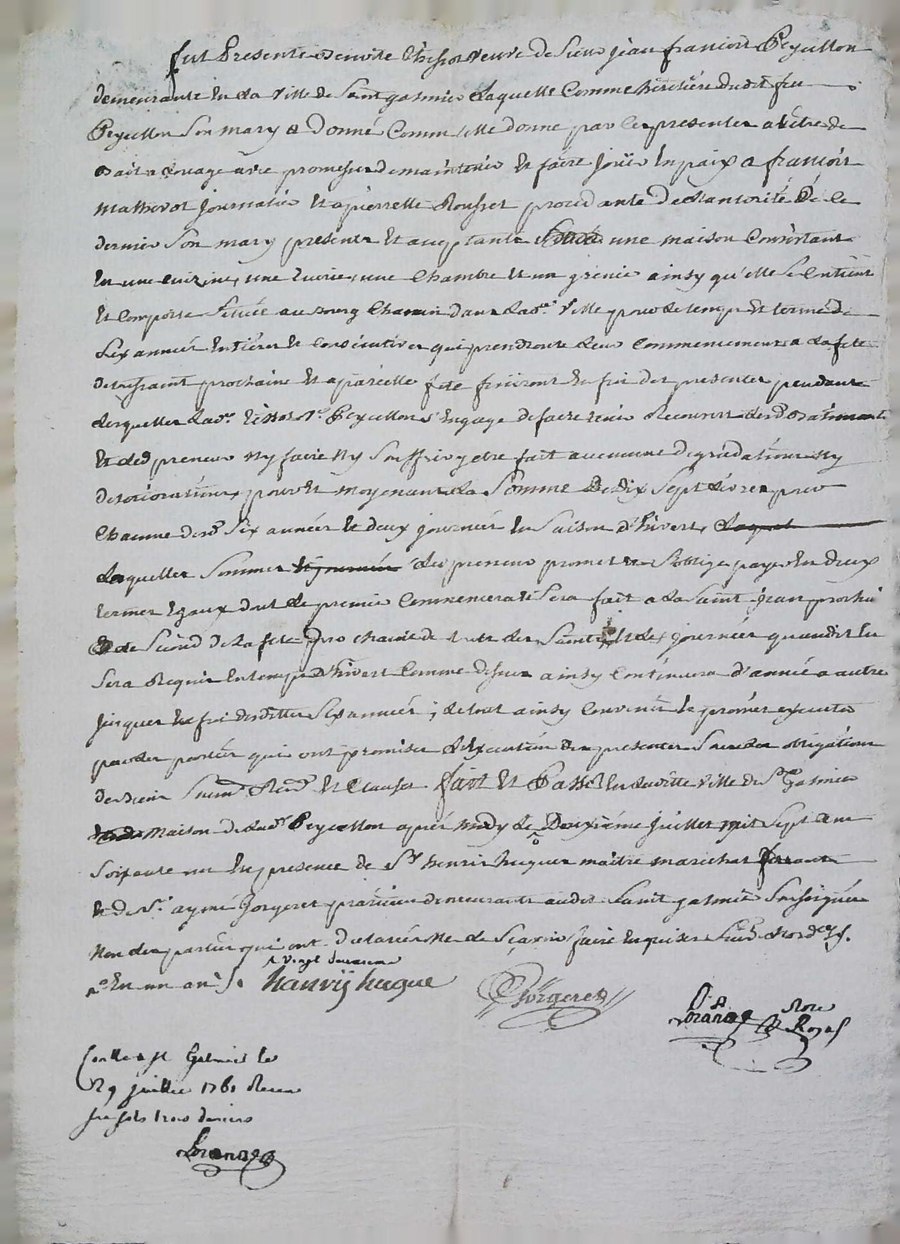 fut Presente Benoite Tissot veuve de Sieur jean francois Peycellon
demeurante En La Ville de Saint galmier Laquelle Comme heritiere dudit feu
Peycellon Son mary a Donné Comm'elle donne par Ces presentes a titre de
Bail a Louage avec promesse de maintenir Et faire jouir En paix a francois
Mathevot journalier Et a pierrette Rousset procedante De Lautorité De Ce
dernier Son mary presents Et acceptants une maison Consistant
En une Cuizine, une Ecurie, une Chambre Et un grenier ainsy qu'elle Se Contient
Et Comporte Scituée au bourg Chemin dans Lad.e Ville pour le temps Et terme de
Six années Entieres Et Consecutives qui prendront Leur Commencement a La fete
de toussaint prochaine Et a pareille fete finiront En fin des presentes pendant
Lesquelles Lad.e Tissot V.e Peycellon S'Engage de faire tenir Recouvert Lesd. Batiments
Et Lesd preneurs N'y faire N'y Souffrir y etre fait aucunne degradations Ny
deteriorations, pour Et moyenant La Somme De Dix Sept Livres pour
Chacune desd. Six années Et deux journées En Saison D'hivert,
Lesquelles Sommes Les preneurs promettent Et S'oblige payer En deux
termes Egaux dont Le premier Commencera Et Sera fait a La Saint jean prochai
Et Le Second a La fete prochaine de tous Les Saints, Et Les journées quand Il En
Sera Requis En temps D'hivert Comme dessus ainsy Continuera D'année a autre
jusques En fin desdittes Six années; Le tout ainsy Convenu Et promis executer
par Les parties qui ont promises L'Execution des presentes Sous Les obligations
de Biens Soum.s Ren.s Et Clauses fait Et Passé En Laditte Ville de S.t Galmier
Maison de Lad.e Peycellon apres midy Le Deuxieme juillet mil Sept Cent
Soixante un En presence de S.r henri hugues maitre marechal ferrant
Et de S.r aymé jorgeret praticien demeurants audit Saint galmier Soussignés
Non Les parties qui ont Declarés Ne Le Scavoir faire Enquises
hanrÿ hugue
Jorgeret
Loranges Nore Royal
Conlle a St Galmier Le
29 juillet 1761 Recu
Loranges